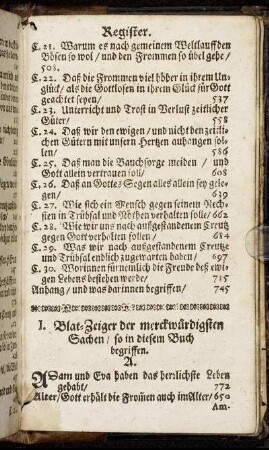 Register.
C. 21. Warum es nach gemeinem Weltlauff den
Bösen so wol / und den Frommen so übel gehe /
508.
C. 22. Daß die Frommen viel höher in ihrem Un-
glück / als die Gottlosen in ihrem Glück für Gott
geachtet seyen / 537
C. 23. Unterricht und Trost in Verlust zeitlicher
Güter / 558
C. 24. Daß wir den ewigen / und nicht den zeitli-
chen Gütern mit unsern Hertzen anhangen sol-
len / 586
C. 25. Daß man die Bauchsorge meiden / und
Gott allein vertrauen soll / 608
C. 26. Daß an Gottes Segen alles allein sey gele-
gen / 639
C. 27. Wie sich ein Mensch gegen seinem Nech-
sten in Trübsal und Nöthen verhalten solle / 662
C. 28. Wie wir uns nach außgestandenem Creutz
gegen Gott verhalten sollen / 684
C. 29. Was wir nach außgestandenem Creutze
und Trübsal endlich zugewarten haben / 697
C. 30. Worinnen fürnemlich die Freude deß ewi-
gen Lebens bestehen werde / 715
Anhang / und was darinnen begriffen / 745
I. Blat-Zeiger der merckwürdigsten
Sachen / so in diesem Buch
begriffen.
A.
ADam und Eva haben das herrlichste Leben
gehabt / 772
Alter / Gott erhält die From̃en auch im Alter / 650
Am-